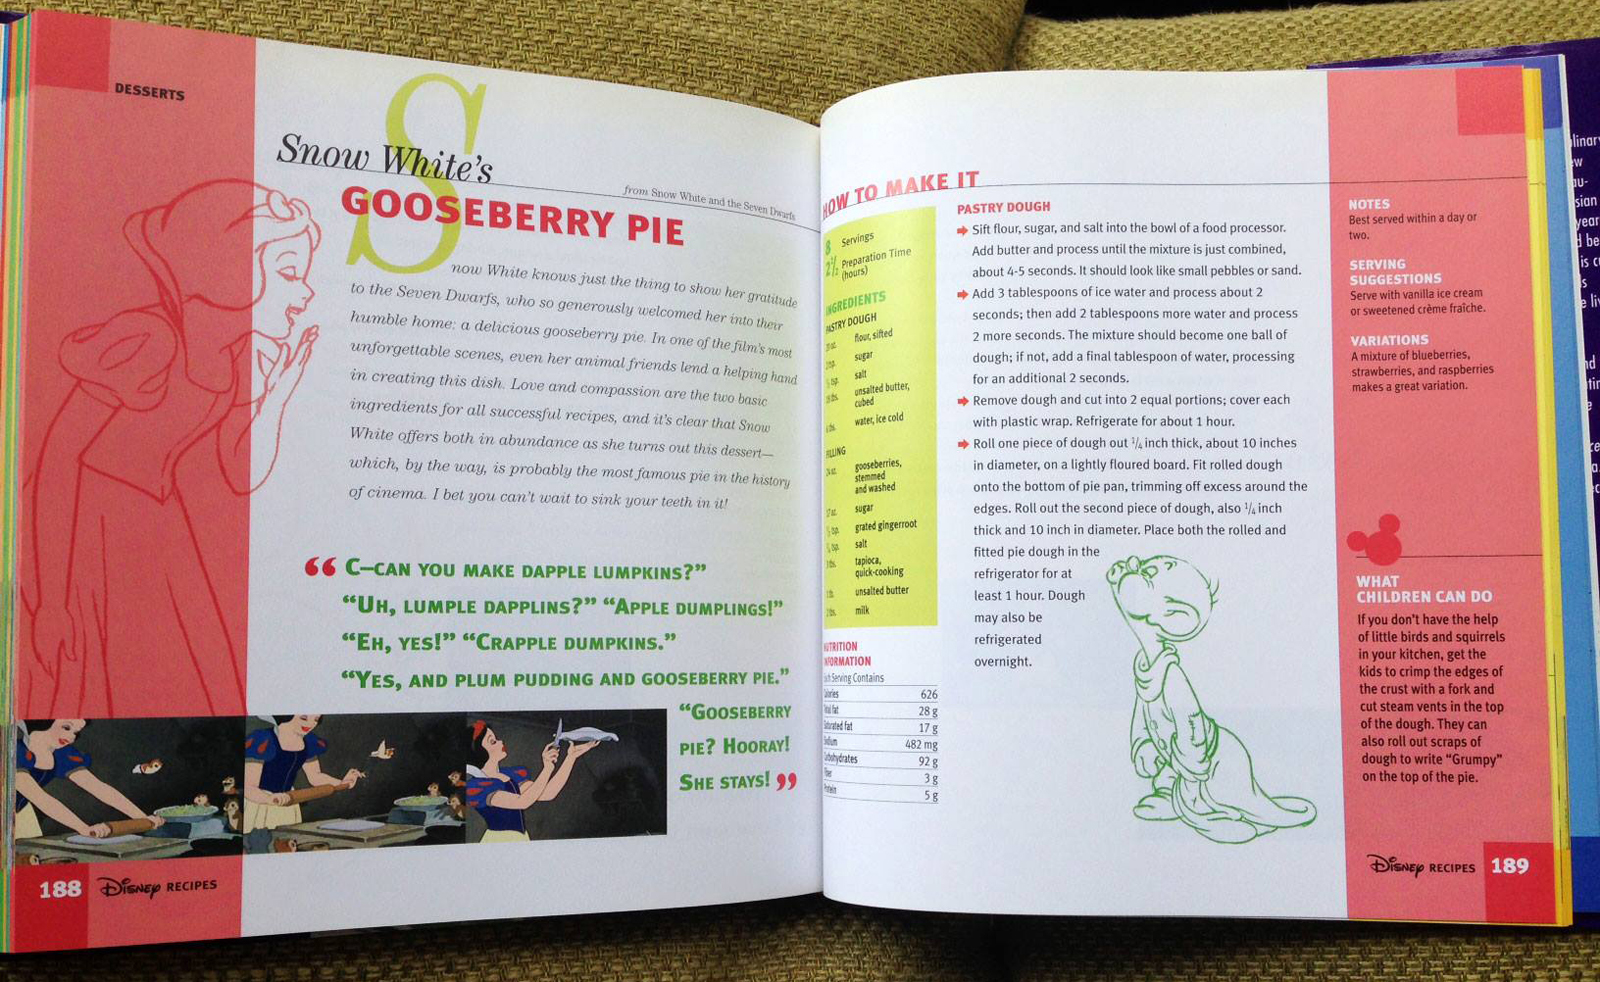 DESSERTS
Snow White's
from Snow White and the Seven Dwarfs
GOOSEBERRY PIE
Snow White knows just the thing to show her gratitude
to the Seven Dwarfs, who so generously welcomed her into their
humble home: a delicious gooseberry pie. In one of the film's most
unforgettable scenes, even her animal friends lend a helping hand
in creating this dish. Love and compassion are the two basic
ingredients for all successful recipes, and it's clear that Snow
White offers both in abundance as she turns out this dessert—
which, by the way, is probably the most famous pie in the history
of cinema. I bet you can't wait to sink your teeth in it!
“ C–CAN YOU MAKE DAPPLE LUMPKINS?”
“UH, LUMPLE DAPPLINS?” “APPLE DUMPLINGS!”
“EH, YES!” “CRAPPLE DUMPKINS.”
“YES, AND PLUM PUDDING AND GOOSEBERRY PIE.”
“GOOSEBERRY
PIE? HOORAY!
SHE STAYS! ”
188 Disney RECIPES
HOW TO MAKE IT
8 Servings
2½ Preparation Time
(hours)
INGREDIENTS
PASTRY DOUGH
flour, sifted
sugar
salt
unsalted butter,
cubed
water, ice cold
FILLING
gooseberries,
stemmed
and washed
sugar
grated gingerroot
salt
tapioca,
quick-cooking
unsalted butter
milk
NUTRITION
INFORMATION
Each Serving Contains
Calories 626
Total fat 28 g
Saturated fat 17 g
Sodium 482 mg
Carbohydrates 92 g
Fiber 3 g
Protein 5 g
PASTRY DOUGH
Sift flour, sugar, and salt into the bowl of a food processor.
Add butter and process until the mixture is just combined,
about 4-5 seconds. It should look like small pebbles or sand.
Add 3 tablespoons of ice water and process about 2
seconds; then add 2 tablespoons more water and process
2 more seconds. The mixture should become one ball of
dough; if not, add a final tablespoon of water, processing
for an additional 2 seconds.
Remove dough and cut into 2 equal portions; cover each
with plastic wrap. Refrigerate for about 1 hour.
Roll one piece of dough out 1/4 inch thick, about 10 inches
in diameter, on a lightly floured board. Fit rolled dough
onto the bottom of pie pan, trimming off excess around the
edges. Roll out the second piece of dough, also 1/4 inch
thick and 10 inch in diameter. Place both the rolled and
fitted pie dough in the
refrigerator for at
least 1 hour. Dough
may also be
refrigerated
overnight.
NOTES
Best served within a day or
two.
SERVING
SUGGESTIONS
Serve with vanilla ice cream
or sweetened crème fraîche.
VARIATIONS
A mixture of blueberries,
strawberries, and raspberries
makes a great variation.
WHAT
CHILDREN CAN DO
If you don't have the help
of little birds and squirrels
in your kitchen, get the
kids to crimp the edges of
the crust with a fork and
cut steam vents in the top
of the dough. They can
also roll out scraps of
dough to write “Grumpy”
on the top of the pie.
Disney RECIPES 189